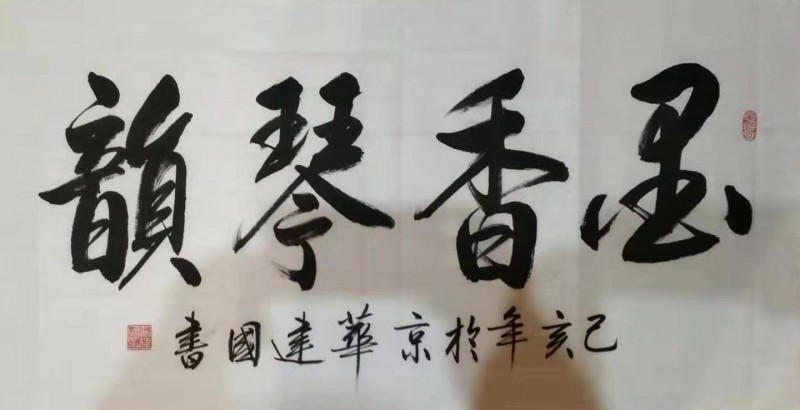 墨香琴韻
己亥年於京華建國書